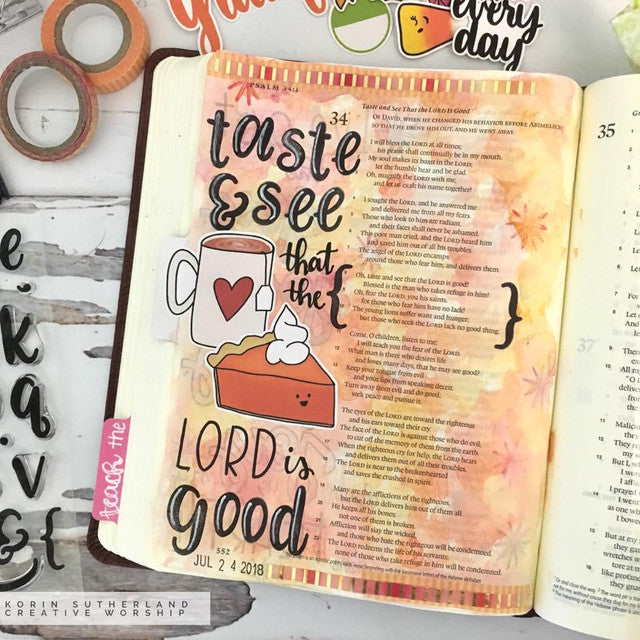 every
day
PSALM 34:1
taste
& see
that
the
LORD is
good
552
JUL 24 2018
teach the
34
Taste and See That the LORD Is Good
OF DAVID, WHEN HE CHANGED HIS BEHAVIOR BEFORE ABIMELECH,
SO THAT HE DROVE HIM OUT, AND HE WENT AWAY.
I will bless the LORD at all times;
his praise shall continually be in my mouth.
My soul makes its boast in the LORD;
let the humble hear and be glad.
Oh, magnify the LORD with me,
and let us exalt his name together!
4 I sought the LORD, and he answered me
and delivered me from all my fears.
5 Those who look to him are radiant,
and their faces shall never be ashamed.
6 This poor man cried, and the LORD heard him
and saved him out of all his troubles.
7 The angel of the LORD encamps
around those who fear him, and delivers them.
Oh, taste and see that the LORD is good!
Blessed is the man who takes refuge in him!
Oh, fear the LORD, you his saints,
for those who fear him have no lack!
The young lions suffer want and hunger;
but those who seek the LORD lack no good thing.
{ }
Come, O children, listen to me;
I will teach you the fear of the LORD.
12 What man is there who desires life
and loves many days, that he may see good?
13 Keep your tongue from evil
and your lips from speaking deceit.
14 Turn away from evil and do good;
seek peace and pursue it.
15 The eyes of the LORD are toward the righteous
and his ears toward their cry.
16 The face of the LORD is against those who do evil,
to cut off the memory of them from the earth.
17 When the righteous cry for help, the LORD hears
and delivers them out of all their troubles.
18 The LORD is near to the brokenhearted
and saves the crushed in spirit.
19 Many are the afflictions of the righteous,
but the LORD delivers him out of them all.
20 He keeps all his bones;
not one of them is broken.
21 Affliction will slay the wicked,
and those who hate the righteous will be condemned.
22 The LORD redeems the life of his servants;
none of those who take refuge in him will be condemned.
35
37
e
k
q
v
& {
KORIN SUTHERLAND
CREATIVE WORSHIP